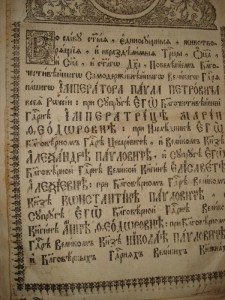 Во славу ст҃ыѧ, єдиносущныѧ, животво
рѧщїѧ, и҆ нераздѣлимыѧ Трⷪ҇цы, Ѻ҆ц҃а
и҆ Сн҃а, и҆ ст҃агѡ Дх҃а: Повелѣнїемъ Бл҃го
чⷭ҇тивѣйшагѡ Самодержавнѣйшагѡ Великагѡ Гдⷭ҇рѧ
нашегѡ ИМПЕРАТОРА ПАVЛА ПЕТРОВИЧА
всеѧ Рѡссїи: при Супругѣ ЕГѠ̀ Бл҃гочестивѣйшей
Гдⷭ҇рнѣ ИМПЕРАТРИЦѢ МАРІИ
ѲЕОДѠРОВНѢ: при Наслѣдникѣ ЕГѠ̀
Бл҃говѣрномъ Гдⷭ҇рѣ Цесаревичѣ, и҆ Великомъ Кнѧзѣ
АЛЕѮАНДРѢ ПАVЛОВИЧѢ, и҆ Супругѣ ЕГѠ̀
Бл҃говѣрной Гдⷭ҇рнѣ Великой Кнѧгинѣ ЕЛІСАВЕТѢ
АЛЕѮІЕВНѢ: при Бл҃говѣрномъ Гдⷭ҇рѣ Великомъ
Кнѧзѣ КОНСТАНТІНѢ ПАVЛОВИЧѢ, и҆
Супругѣ ЕГѠ̀ Бл҃говѣрной Гдⷭ҇рнѣ Великой
Кнѧгинѣ АННѢ ѲЕОДѠРОВНѢ: при Бл҃говѣрномъ
Гдⷭ҇рѣ Великомъ Кнѧзѣ НІКОЛАѢ ПАVЛОВИЧѢ
и҆ Бл҃говѣрныхъ Гдⷭ҇рнѧхъ Великихъ Кнѧжнахъ